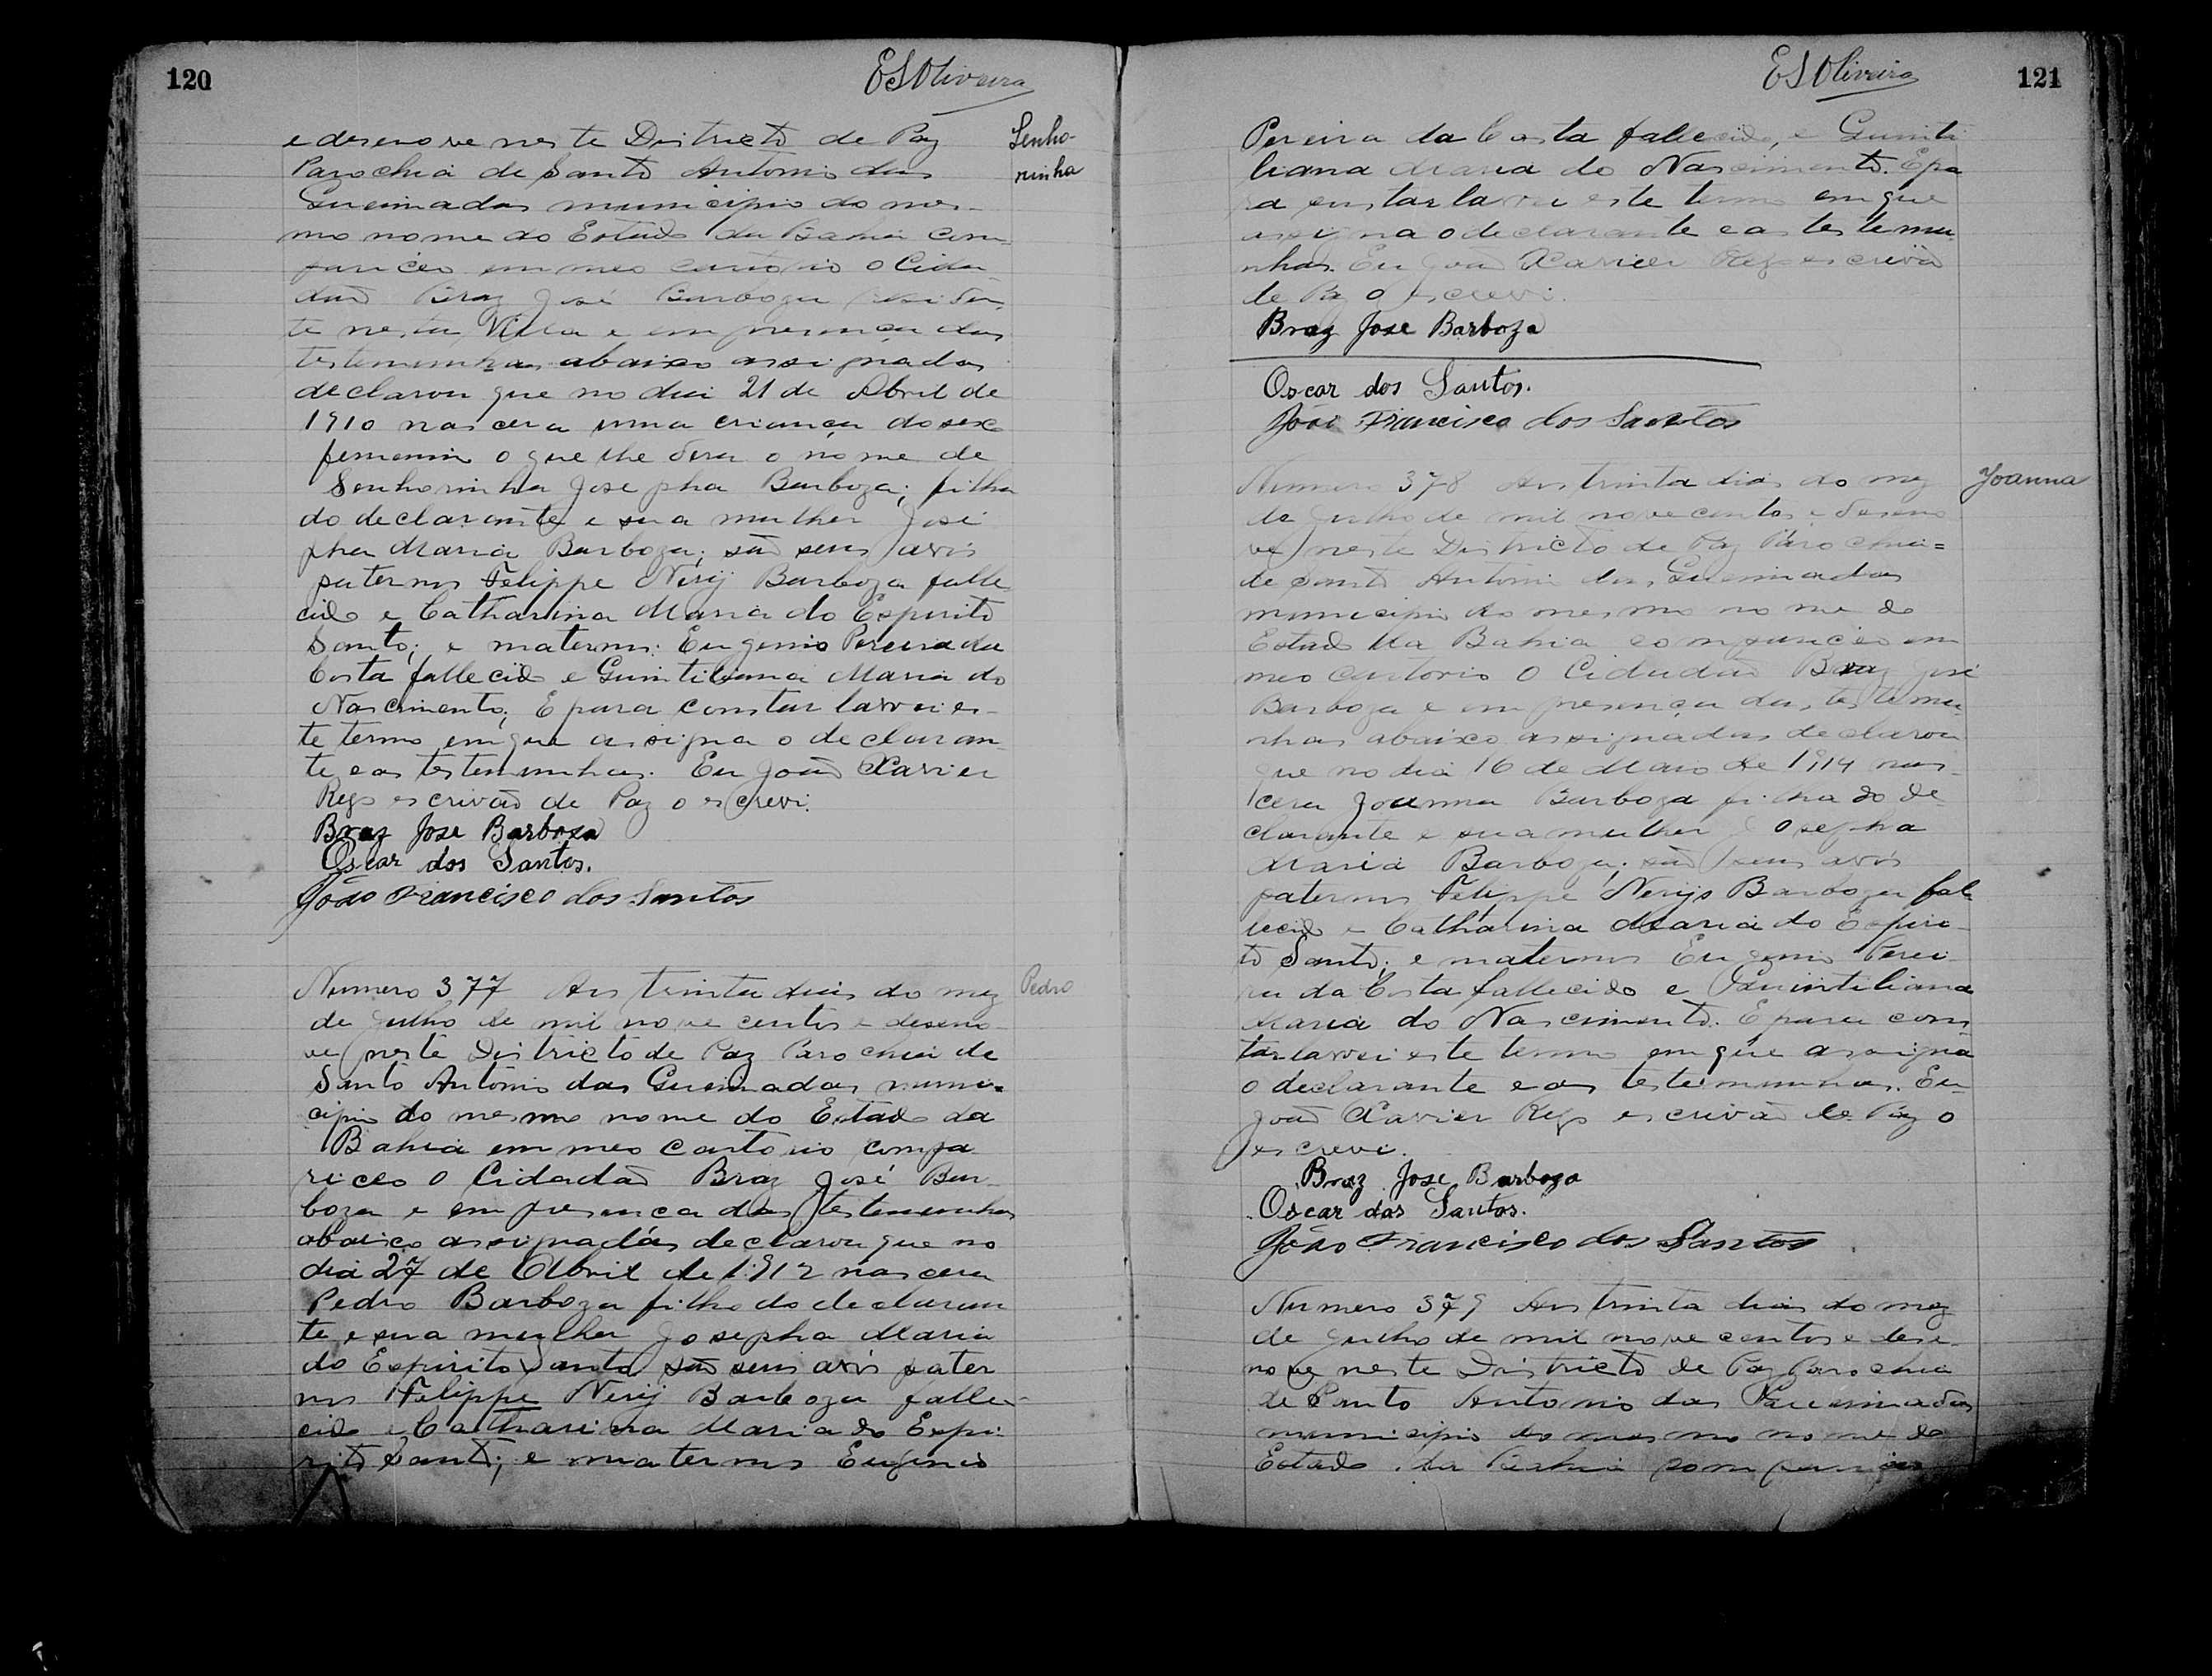 120
ESOliveira
e desenove neste Districto de Paz
Senho-
rinha
Parochia de Santo Antonio das
Queimadas municipio do mes-
mo nome do Estado da Bahia com
pariceo em meo cartorio o Cida-
dão Braz José Barboza residen
te nesta Villa e em presença das
testemunhas abaixo assignadas
declarou que no dia 21 de Abril de
1910 nascera uma criança do sexo
femenin o que lhe dera o nome de
Senhorinha Josepha Barboza; filha
do declarante e sua mulher José
pha Maria Barboza; são seus avós
paternos Felippe Nerij Barboza falle
cido e Catharina Maria do Espirito
Santo; e maternos: Eugenio Pereira da
Costa fallecido e Quintiliana Maria do
Nascimento; E para constar lavrei es-
te termo em que assigna o declaran
te e as testemunhas. Eu João Xavier
Rego escrivão de Paz o escrevi.
Braz Jose Barboza
Oscar dos Santos.
João Francisco dos Santos
Numero 377 Aos trinta dias do mez
Pedro
de Julho de mil nove centos e deseno-
ve neste Districto de Paz Parochia de
Santo Antonio das Queimadas muni=
cipio do mesmo nome do Estado da
Bahia em meo cartorio compa
riceo o Cidadão Braz José Bar-
boza e em presença das testemunhas
abaixo assignadas declarou que no
dia 27 de Abril de 1912 nascera
Pedro Barboza filho do declaran
te e sua mulher Josepha Maria
do Espirito Santo são seus avós pater
nos Felippe Nerij Barboza falle-
cido e Catharina Maria do Espi-
rito Santo; e maternos Eugenio
ESOliveira
121
Pereira da Costa fallecido, e Quinti
liana Maria do Nascimento. E pa
ra constar lavrei este termo em que
assigna o declarante e as testemu-
nhas. Eu João Xavier Rego escrivão
de Paz o escrevi.
Braz Jose Barboza
Oscar dos Santos.
João Francisco dos Santos
Numero 378 Aos trinta dias do mez
Joanna
de Julho de mil nove centos e deseno
ve neste Districto de Paz Parochia=
de Santo Antonio das Queimadas
municipio do mesmo nome do
Estado da Bahia compariceo em
meo cartorio o Cidadão Braz José
Barboza e em presença das testemu-
nhas abaixo assignadas declarou
que no dia 16 de Maio de 1914 nas-
cera Joanna Barboza filha do de
clarante e sua mulher Josepha
Maria Barboza; são seus avós
paternos Felippe Nerijo Barboza fal
lecido e Catharina Maria do Espiri-
to Santo; e maternos Eugenio Perei-
ra da Costa fallecido e Quintiliana
Maria do Nascimento. E para cons
tar lavrei este termo em que assigna
o declarante e as testemunhas. Eu
João Xavier Rego escrivão de Paz o
escrevi.
Braz Jose Barboza
Oscar dos Santos.
João Francisco dos Santos
Numero 379 Aos trinta dias do mez
de Julho de mil nove centos e dese-
nove neste Districto de Paz Parochia
de Santo Antonio das Queimadas
municipio do mesmo nome do
Estado da Bahia compariceo